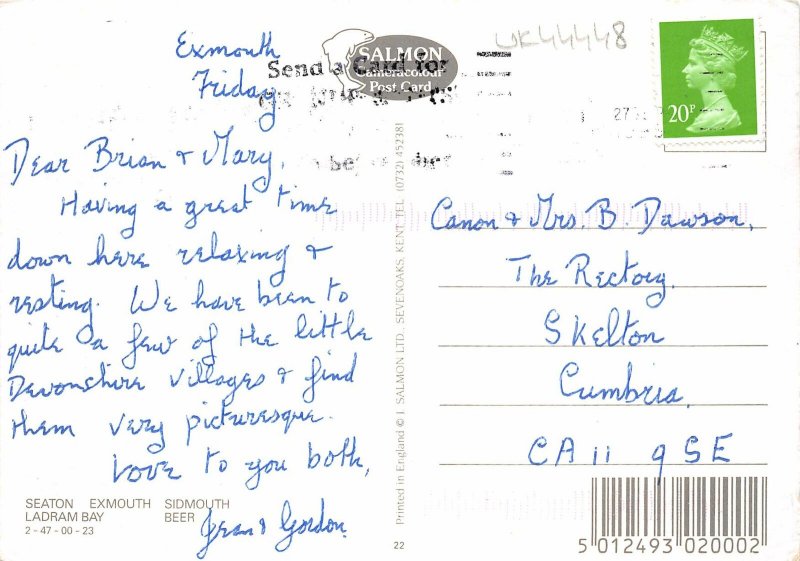 UK44448
SALMON
Cameracolour
Post Card
Send a Card for
20P
27
Exmouth
Friday
Dear Brian & Mary,
Having a great time
down here relaxing &
resting. We have been to
quite a few of the little
Devonshire villages & find
them very picturesque.
Love to you both,
Jean & Gordon.
SEATON EXMOUTH SIDMOUTH
LADRAM BAY BEER
2-47-00-23
Printed in England © J. SALMON LTD. SEVENOAKS. KENT. TEL (0732) 452381
22
Canon & Mrs. B. Dawson,
The Rectory,
Skelton
Cumbria.
CA11 9SE
5 012493 020002